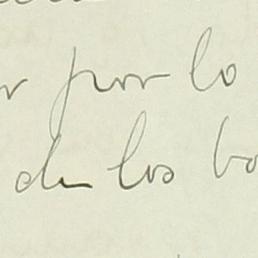 por lo
de los